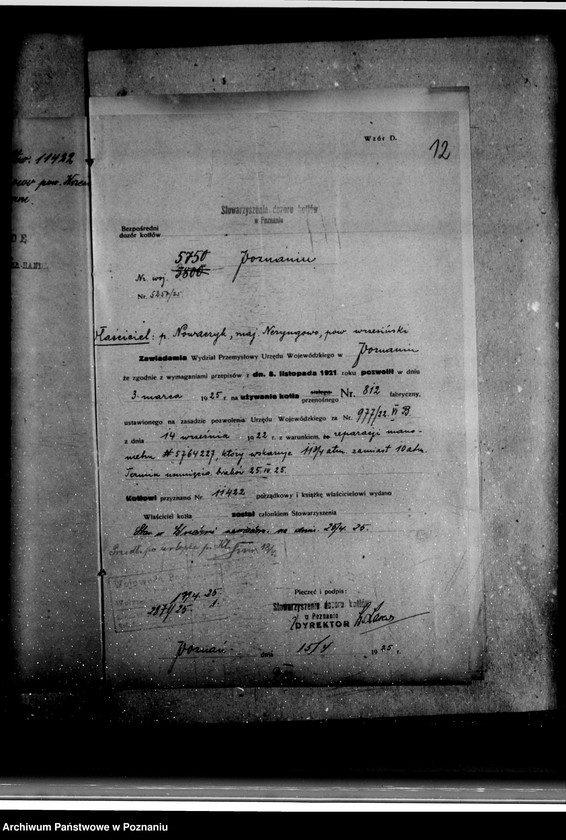 Nr. 11422
Wzór D.
12
Stowarzyszenie dozoru kotłów
w Poznaniu
Bezpośredni
dozór kotłów
5750
Nr. woj. 7500 Poznaniu
Nr. 5257/25.
Właściciel: p. Nowaczyk, maj. Neryngowo, pow. wrzesiński
Zawiadamia Wydział Przemysłowy Urzędu Wojewódzkiego w Poznaniu
że zgodnie z wymaganiami przepisów z dn. 8. listopada 1921 roku pozwolił w dniu
3. marca 1925 r. na używanie kotła stałego przenośnego Nr. 812 fabryczny,
ustawionego na zasadzie pozwolenia Urzędu Wojewódzkiego za Nr. 977/22. VI B
z dnia 14 września 1922 z warunkiem, że reparacji mano-
metru # 5764227, który wskazuje 11 atm. zamiast 10 atm.
Termin usunięcia braków 25. IV. 25.
Kotłowi przyznano Nr. 11422 porządkowy i książkę właścicielowi wydano
Właściciel kotła został członkiem Stowarzyszenia
na dniu 26/4. 25.
19.4.25
2871/25.
Pieczęć i podpis:
Stowarzyszenie dozoru kotłów
w Poznaniu
DYREKTOR
Poznań dnia 15/4 1925 r.
Archiwum Państwowe w Poznaniu